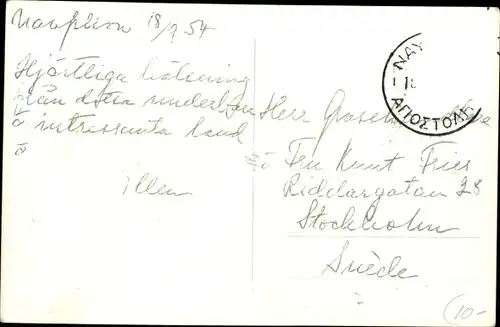 Nauplion 18/9 54
Hjärtliga hälsning
från detta underbara
o intressanta land
Ellen
ΝΑΥ
ΑΠΟΣΤΟΛΗ
Herr
o Fru Knut Fries
Riddargatan 28
Stockholm
Suède
10-